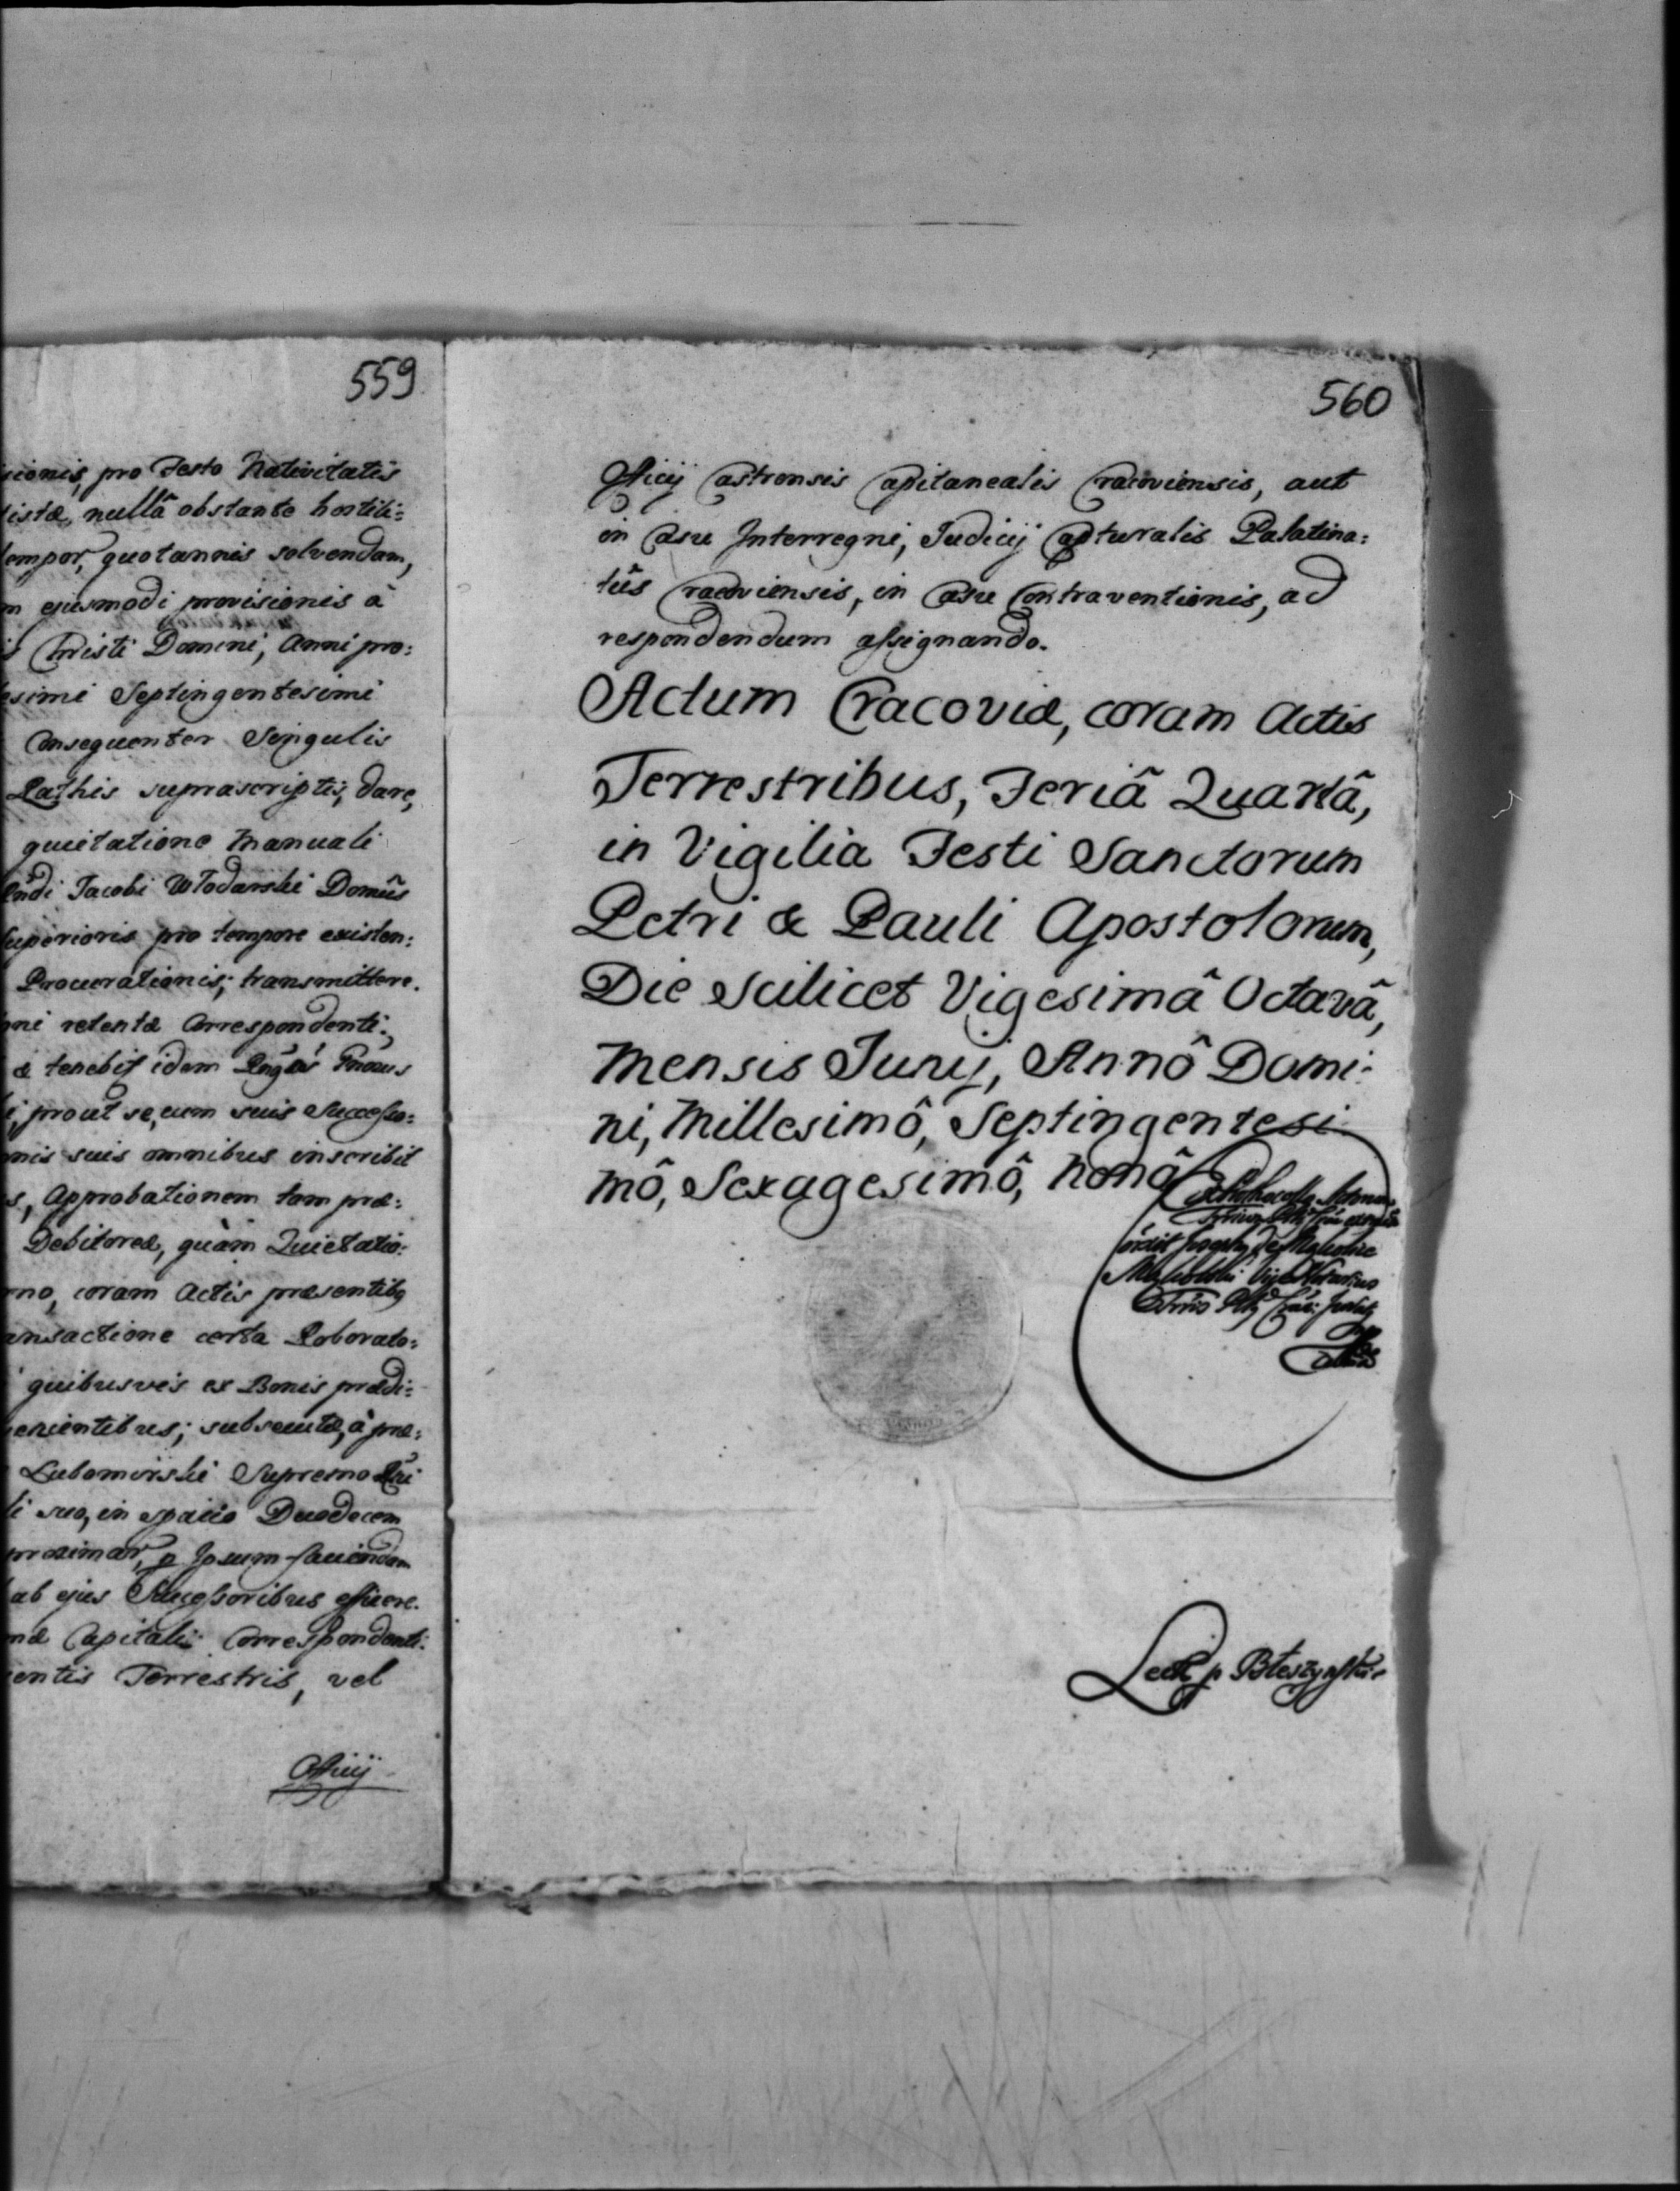 559
pro Festo Nativitatis
nullâ obstante hostili:
quotannis solvendam,
ejusmodi provisionis à
Christi Domini, Anni pro:
Septingentesimi
Consequenter Singulis
Rathis suprascriptis, dare,
quietatione Manuali
Jacobi Włodarski Domûs
Superioris pro tempore existen:
Procurationis; transmittere.
retentæ Correspondenti:
& tenebit idem
prout se, cum suis Successo:
suis omnibus inscribit
Approbationem tam præ:
Debitoreæ, quàm Quietatio:
coram Actis præsentibg
certa Roborato:
quibusvis ex Bonis prædi:
subsecutæ, à præ:
Lubomirski Supremo
suo, in spatio Duodecem
p Ipsum faciendam
ab ejus Successoribus efficere.
Capitali Correspondenti:
Terrestris, vel
Officij
560
Officij Castrensis Capitanealis Cracoviensis, aut
in Casu Interregni, Judicij Capturalis Palatina:
tûs Cracoviensis, in Casu Contraventionis, ad
respondendum assignando.
Actum Cracoviæ, coram Actis
Terrestribus, Feriâ Quartâ,
in Vigilia Festi Sanctorum
Petri & Pauli Apostolorum,
Die scilicet Vigesimâ Octavâ,
Mensis Junij, Annô Domi:
ni, Millesimô, Septingentesi
mô, Sexagesimô, Nonô
Lect p Błeszyński